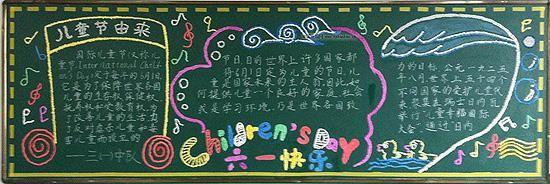 儿童节由来
国际儿童节(又称儿
童节,International Children's
Day)定于每年的6月1日,
它是为了保障世界各国
儿童的生存权、保健权
抚养权和受教育权,为
了改善儿童的生活,为
了反对虐杀儿童和毒
害儿童而设立的
—— 三(一)中队
节日目的世界上许多国家都
将6月1日定为儿童的节日。
儿童是国家的未来,因此如
何提供儿童一个良好的家庭、社会
或是学习环境,乃是世界各国致
Children's Day
六一快乐
力的目标。公元一九二五
年八月,世界上五十四个
不同国家的爱护儿童代
表,聚集在瑞士日内瓦
举行“儿童幸福国际
大会”,通过日内